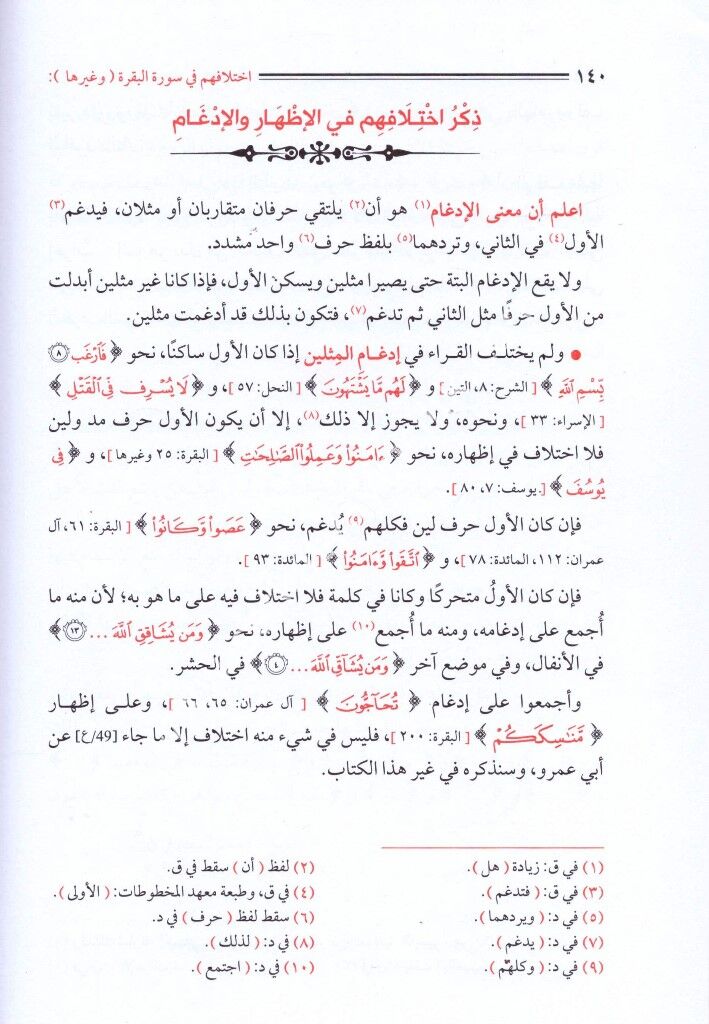 ١٤٠ اختلافهم في سورة البقرة ( وغيرها ):
ذِكْرُ اخْتِلَافِهِم في الإظْهَارِ والإدْغَامِ
اعلم أن معنى الإدغام(١) هو أن(٢) يلتقي حرفان متقاربان أو مثلان، فيدغم(٣)
الأول(٤) في الثاني، وتردهما(٥) بلفظ حرف(٦) واحد مشدد.
ولا يقع الإدغام البتة حتى يصيرا مثلين ويسكن الأول، فإذا كانا غير مثلين أبدلت
من الأول حرفًا مثل الثاني ثم تدغم(٧)، فتكون بذلك قد أدغمت مثلين.
• ولم يختلف القراء في إدغام المِثلين إذا كان الأول ساكنًا، نحو ﴿ فَٱرۡغَب ٨
بِّسۡمِ ٱللَّهِ ﴾ [ الشرح: ٨، التين ] و ﴿ لَهُم مَّا يَشۡتَهُونَ ﴾ [ النحل: ٥٧ ]، و ﴿ لَا يُسۡرِف فِّي ٱلۡقَتۡلِ ﴾
[ الإسراء: ٣٣ ]، ونحوه، ولا يجوز إلا ذلك(٨)، إلا أن يكون الأول حرف مد ولين
فلا اختلاف في إظهاره، نحو ﴿ ءَامَنُواْ وَعَمِلُواْ ٱلصَّٰلِحَٰتِ ﴾ [ البقرة: ٢٥ وغيرها ]، و ﴿ فِي
يُوسُفَ ﴾ [ يوسف: ٧، ٨٠ ].
فإن كان الأول حرف لين فكلهم(٩) يُدغم، نحو ﴿ عَصَواْ وَّكَانُواْ ﴾ [ البقرة: ٦١، آل
عمران: ١١٢، المائدة: ٧٨ ]، و ﴿ ٱتَّقَواْ وَّءَامَنُواْ ﴾ [ المائدة: ٩٣ ].
فإن كان الأولُ متحركًا وكانا في كلمة فلا اختلاف فيه على ما هو به؛ لأن منه ما
أُجمع على إدغامه، ومنه ما أُجمع(١٠) على إظهاره، نحو ﴿ وَمَن يُشَاقِقِ ٱللَّهَ ... ١٣ ﴾
في الأنفال، وفي موضع آخر ﴿ وَمَن يُشَآقِّ ٱللَّهَ ... ٤ ﴾ في الحشر.
وأجمعوا على إدغام ﴿ تُحَآجُّونَ ﴾ [ آل عمران: ٦٥، ٦٦ ]، وعلى إظهار
﴿ مَّنَٰسِكَكُمۡ ﴾ [ البقرة: ٢٠٠ ]، فليس في شيء منه اختلاف إلا ما جاء [49/غ] عن
أبي عمرو، وسنذكره في غير هذا الكتاب.
(١) في ق: زيادة ( هل ). (٢) لفظ ( أن ) سقط في ق.
(٣) في ق: ( فتدغم ). (٤) في ق، وطبعة معهد المخطوطات: ( الأولى ).
(٥) في د: ( ويردهما ). (٦) سقط لفظ ( حرف ) في د.
(٧) في د: ( يدغم ). (٨) في د: ( لذلك ).
(٩) في د: ( وكلهم ). (١٠) في د: ( اجتمع ).